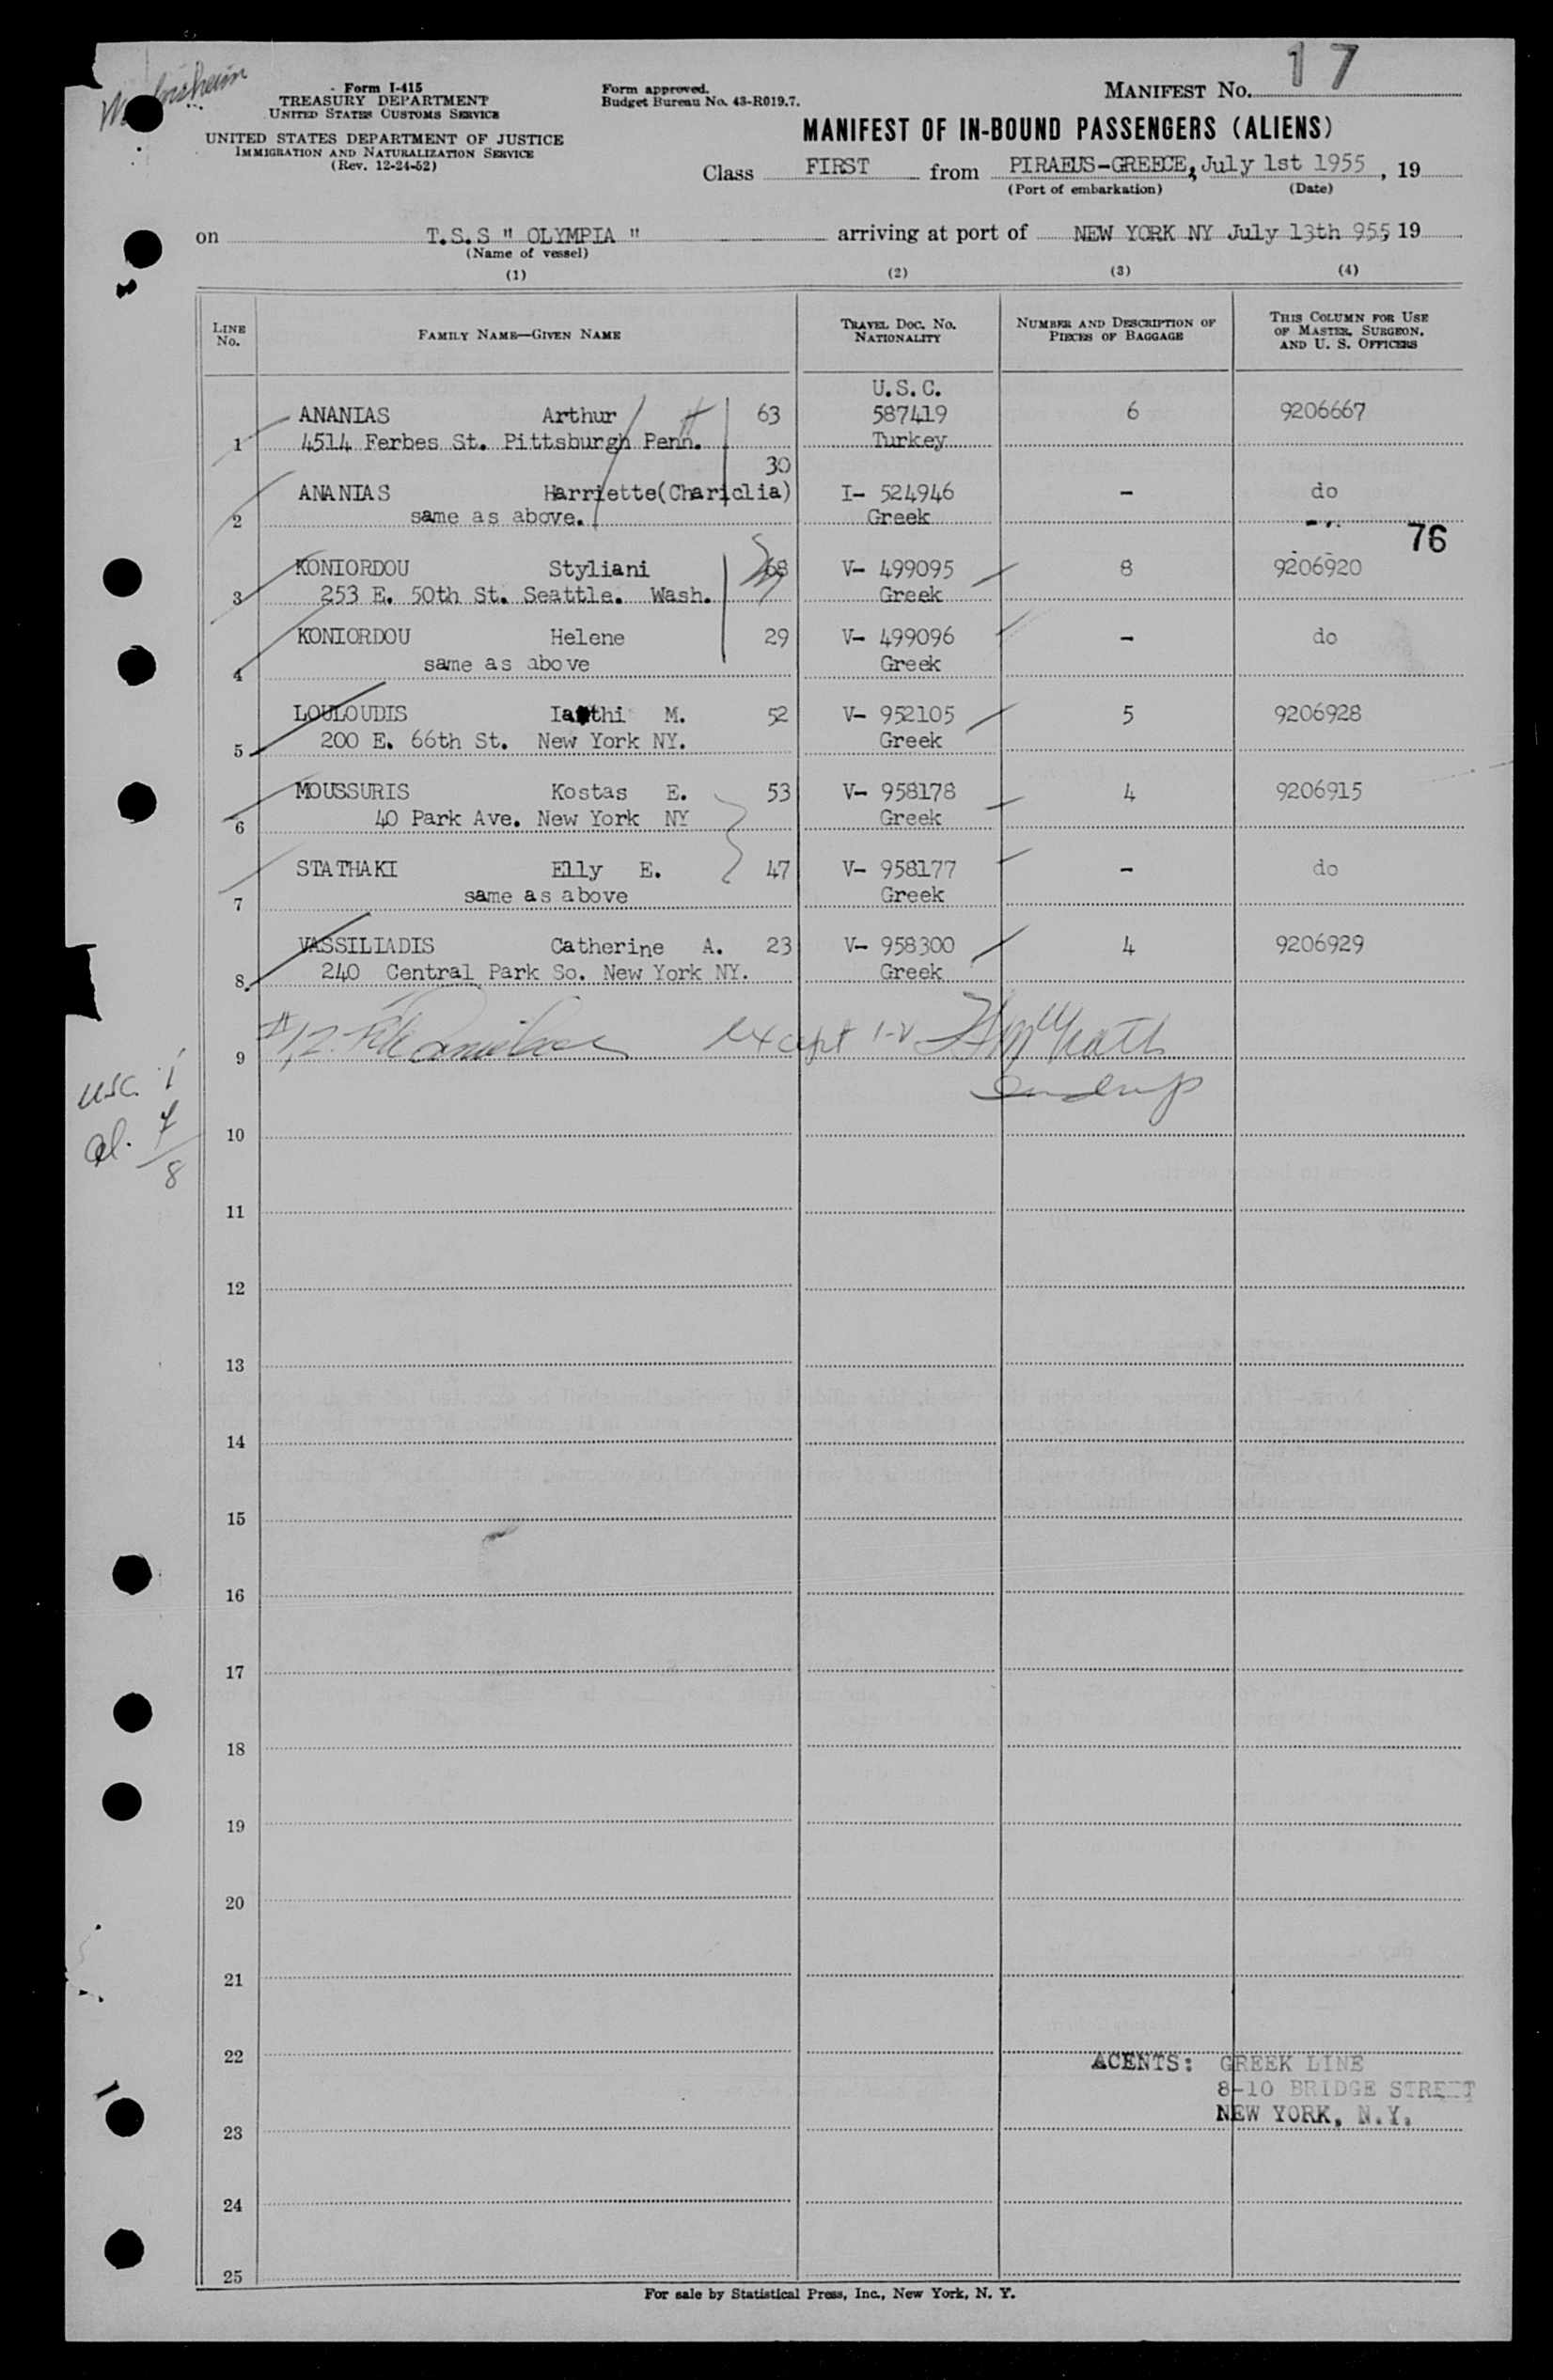 17
Form I-415
TREASURY DEPARTMENT
UNITED STATES CUSTOMS SERVICE
UNITED STATES DEPARTMENT OF JUSTICE
IMMIGRATION AND NATURALIZATION SERVICE
(Rev. 12-24-52)
Form approved.
Budget Bureau No. 43-R019.7.
MANIFEST No.
MANIFEST OF IN-BOUND PASSENGERS (ALIENS)
Class FIRST from PIRAEUS-GREECE, July 1st 1955, 19
(Port of embarkation) (Date)
on T.S.S " OLYMPIA " arriving at port of NEW YORK NY July 13th 955, 19
(Name of vessel)
(1) (2) (3) (4)
LINE No. FAMILY NAME—GIVEN NAME TRAVEL DOC. No. NATIONALITY NUMBER AND DESCRIPTION OF PIECES OF BAGGAGE THIS COLUMN FOR USE OF MASTER, SURGEON, AND U. S. OFFICERS
U.S.C.
ANANIAS Arthur 63 587419 6 9206667
1 4514 Ferbes St. Pittsburgh Penn. Turkey
30
ANANIAS Harriette(Chariclia) I- 524946 - do
2 same as above. Greek
76
KONIORDOU Styliani 68 V- 499095 8 9206920
3 253 E. 50th St. Seattle. Wash. Greek
KONIORDOU Helene 29 V- 499096 - do
4 same as above Greek
LOULOUDIS Ianthi M. 52 V- 952105 5 9206928
5 200 E. 66th St. New York NY. Greek
MOUSSURIS Kostas E. 53 V- 958178 4 9206915
6 40 Park Ave. New York NY Greek
STATHAKI Elly E. 47 V- 958177 - do
7 same as above Greek
VASSILIADIS Catherine A. 23 V- 958300 4 9206929
8 240 Central Park So. New York NY. Greek
9 except 1-2
usc. 1
al. 7
8
10
11
12
13
14
15
16
17
18
19
20
21
22
ACENTS: GREEK LINE
8-10 BRIDGE STREET
NEW YORK, N.Y.
23
24
25
For sale by Statistical Press, Inc., New York, N. Y.